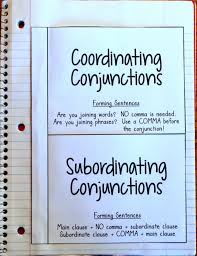 Coordinating
Conjunctions
Forming Sentences
Are you joining words? NO comma is needed.
Are you joining phrases? Use a COMMA before
the conjunction!
Subordinating
Conjunctions
Forming Sentences
Main clause + NO comma + subordinate clause
Subordinate clause + COMMA + main clause